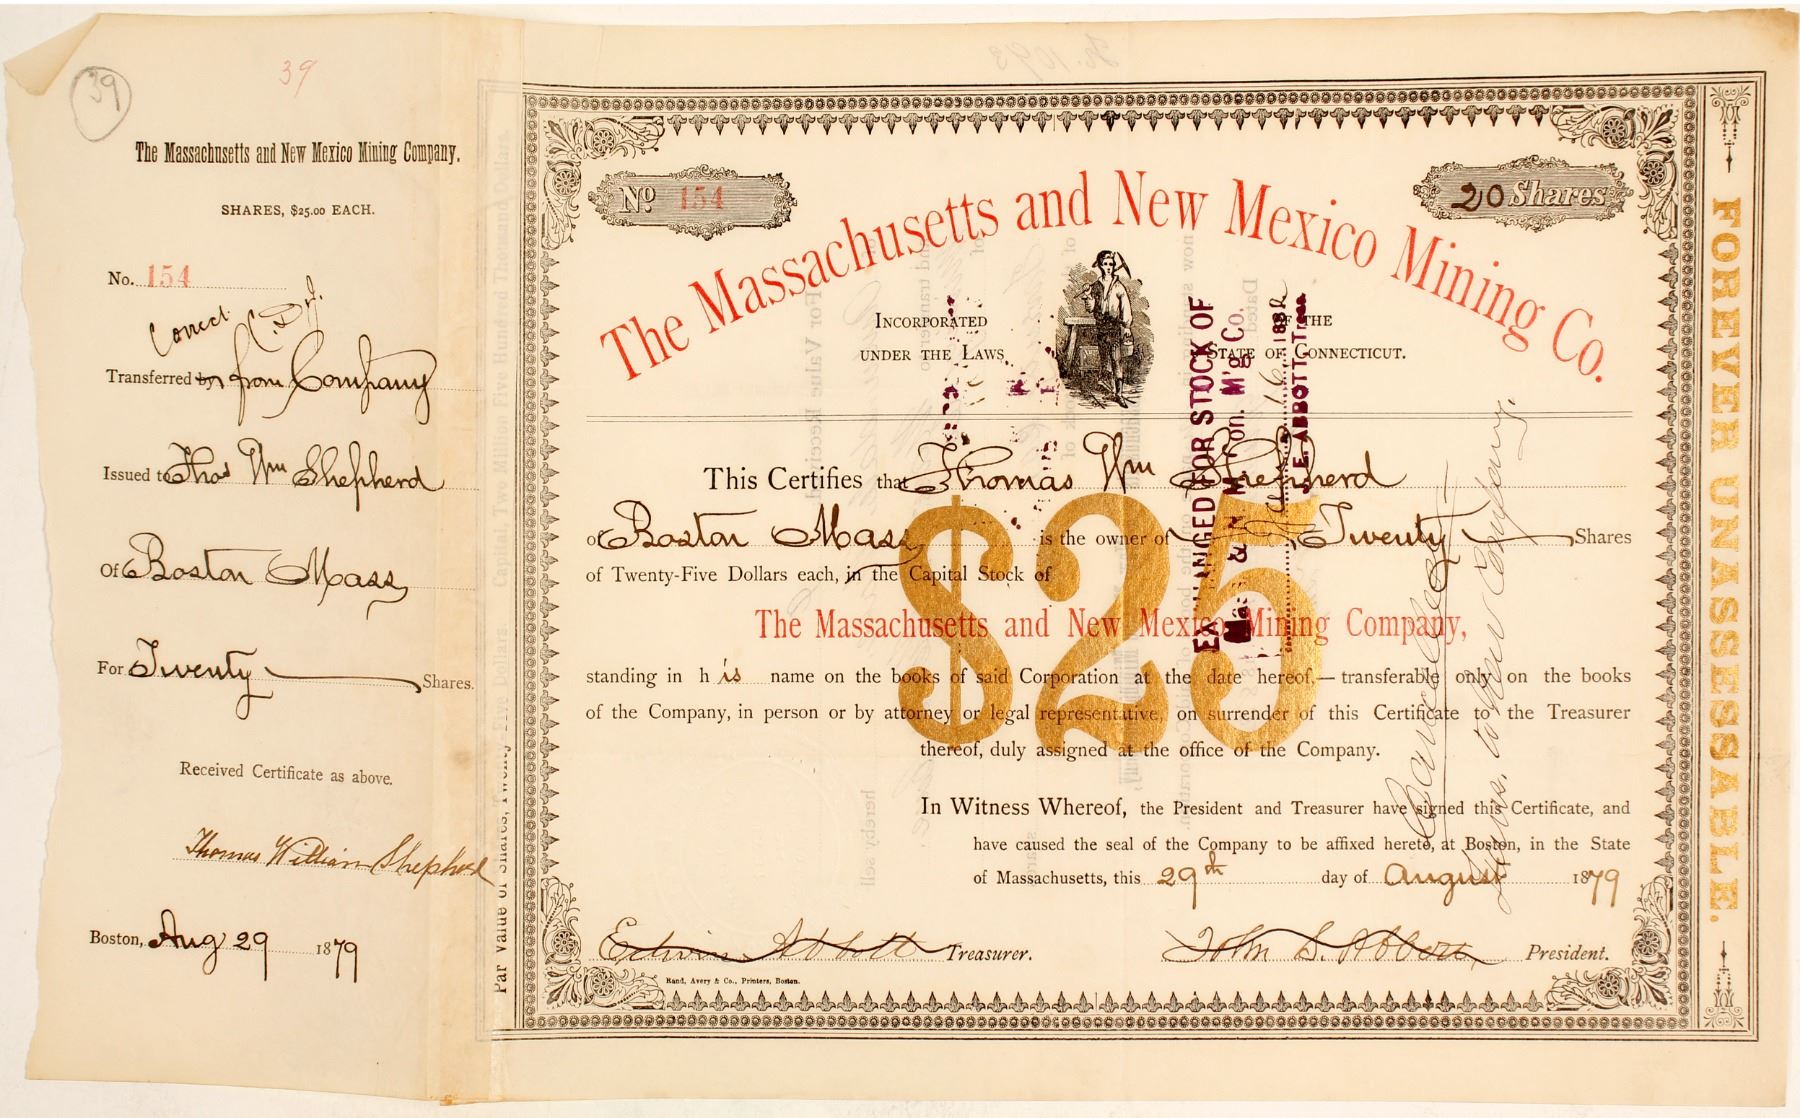 39
39
The Massachusetts and New Mexico Mining Company.
SHARES, $25.00 EACH.
No. 154
Correct
Transferred by from Company
Issued to Thos Wm Shepherd
Of Boston Mass
For Twenty Shares.
Received Certificate as above.
Thomas William Shepherd
Boston, Aug 29 1879
Par Value of Shares, Twenty Five Dollars. Capital Two Million Five Hundred Thousand Dollars.
No 154
20 Shares
The Massachusetts and New Mexico Mining Co.
INCORPORATED OF THE
UNDER THE LAWS STATE OF CONNECTICUT.
This Certifies that Thomas Wm Shepherd
of Boston Mass is the owner of Twenty Shares
of Twenty-Five Dollars each, in the Capital Stock of
$25
The Massachusetts and New Mexico Mining Company,
standing in his name on the books of said Corporation at the date hereof,— transferable only on the books
of the Company, in person or by attorney or legal representative, on surrender of this Certificate to the Treasurer
thereof, duly assigned at the office of the Company.
In Witness Whereof, the President and Treasurer have signed this Certificate, and
have caused the seal of the Company to be affixed hereto, at Boston, in the State
of Massachusetts, this 29th day of August 1879
Edwin Abbott Treasurer. John S. Abbott President.
Rand, Avery & Co., Printers, Boston.
EXCHANGED FOR STOCK OF
Mass & N. M. Con. M'g Co.
16 1882
J. E. ABBOTT Treas.
Cancelled
FOREVER UNASSESSABLE.